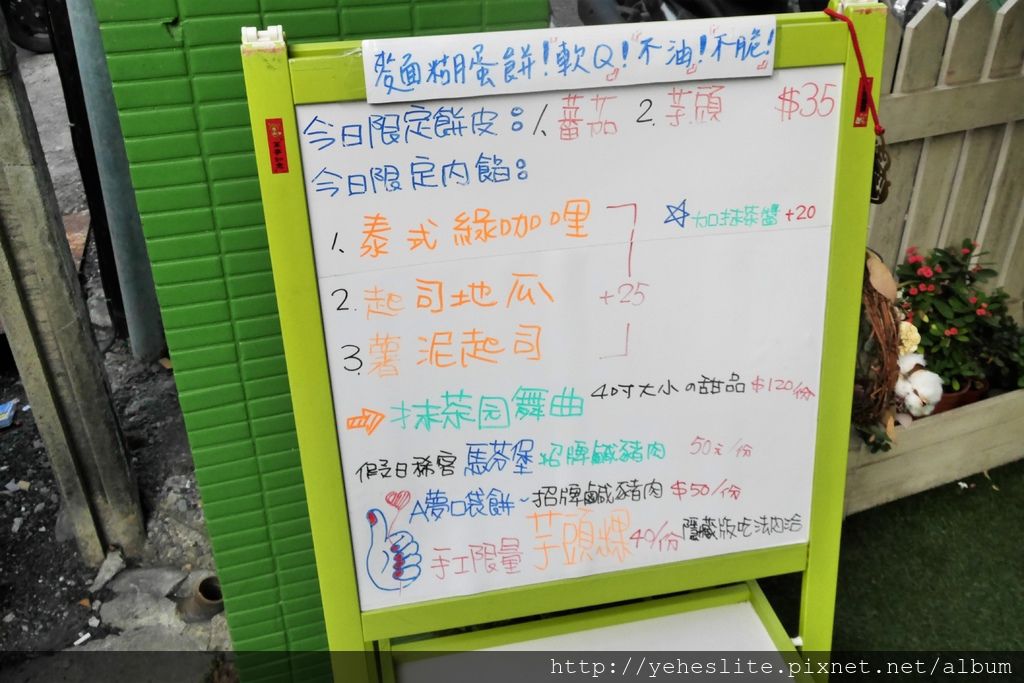 麥面糊蛋餅!軟Q!不油!不脆!
今日限定餅皮:1.蕃茄 2.芋頭 $35
今日限定內餡:
1. 泰式綠咖哩
☆加抹茶醬+20
2. 起司地瓜 +25
3. 薯泥起司
⇨抹茶园舞曲 4吋大小の甜品 $120/份
假日稀客 馬芬堡 招牌鹹豬肉 50元/份
A夢口袋餅~招牌鹹豬肉 $50/份
手工限量 芋頭螺 40/份 隱藏版吃法內洽
http://yeheslite.pixnet.net/album